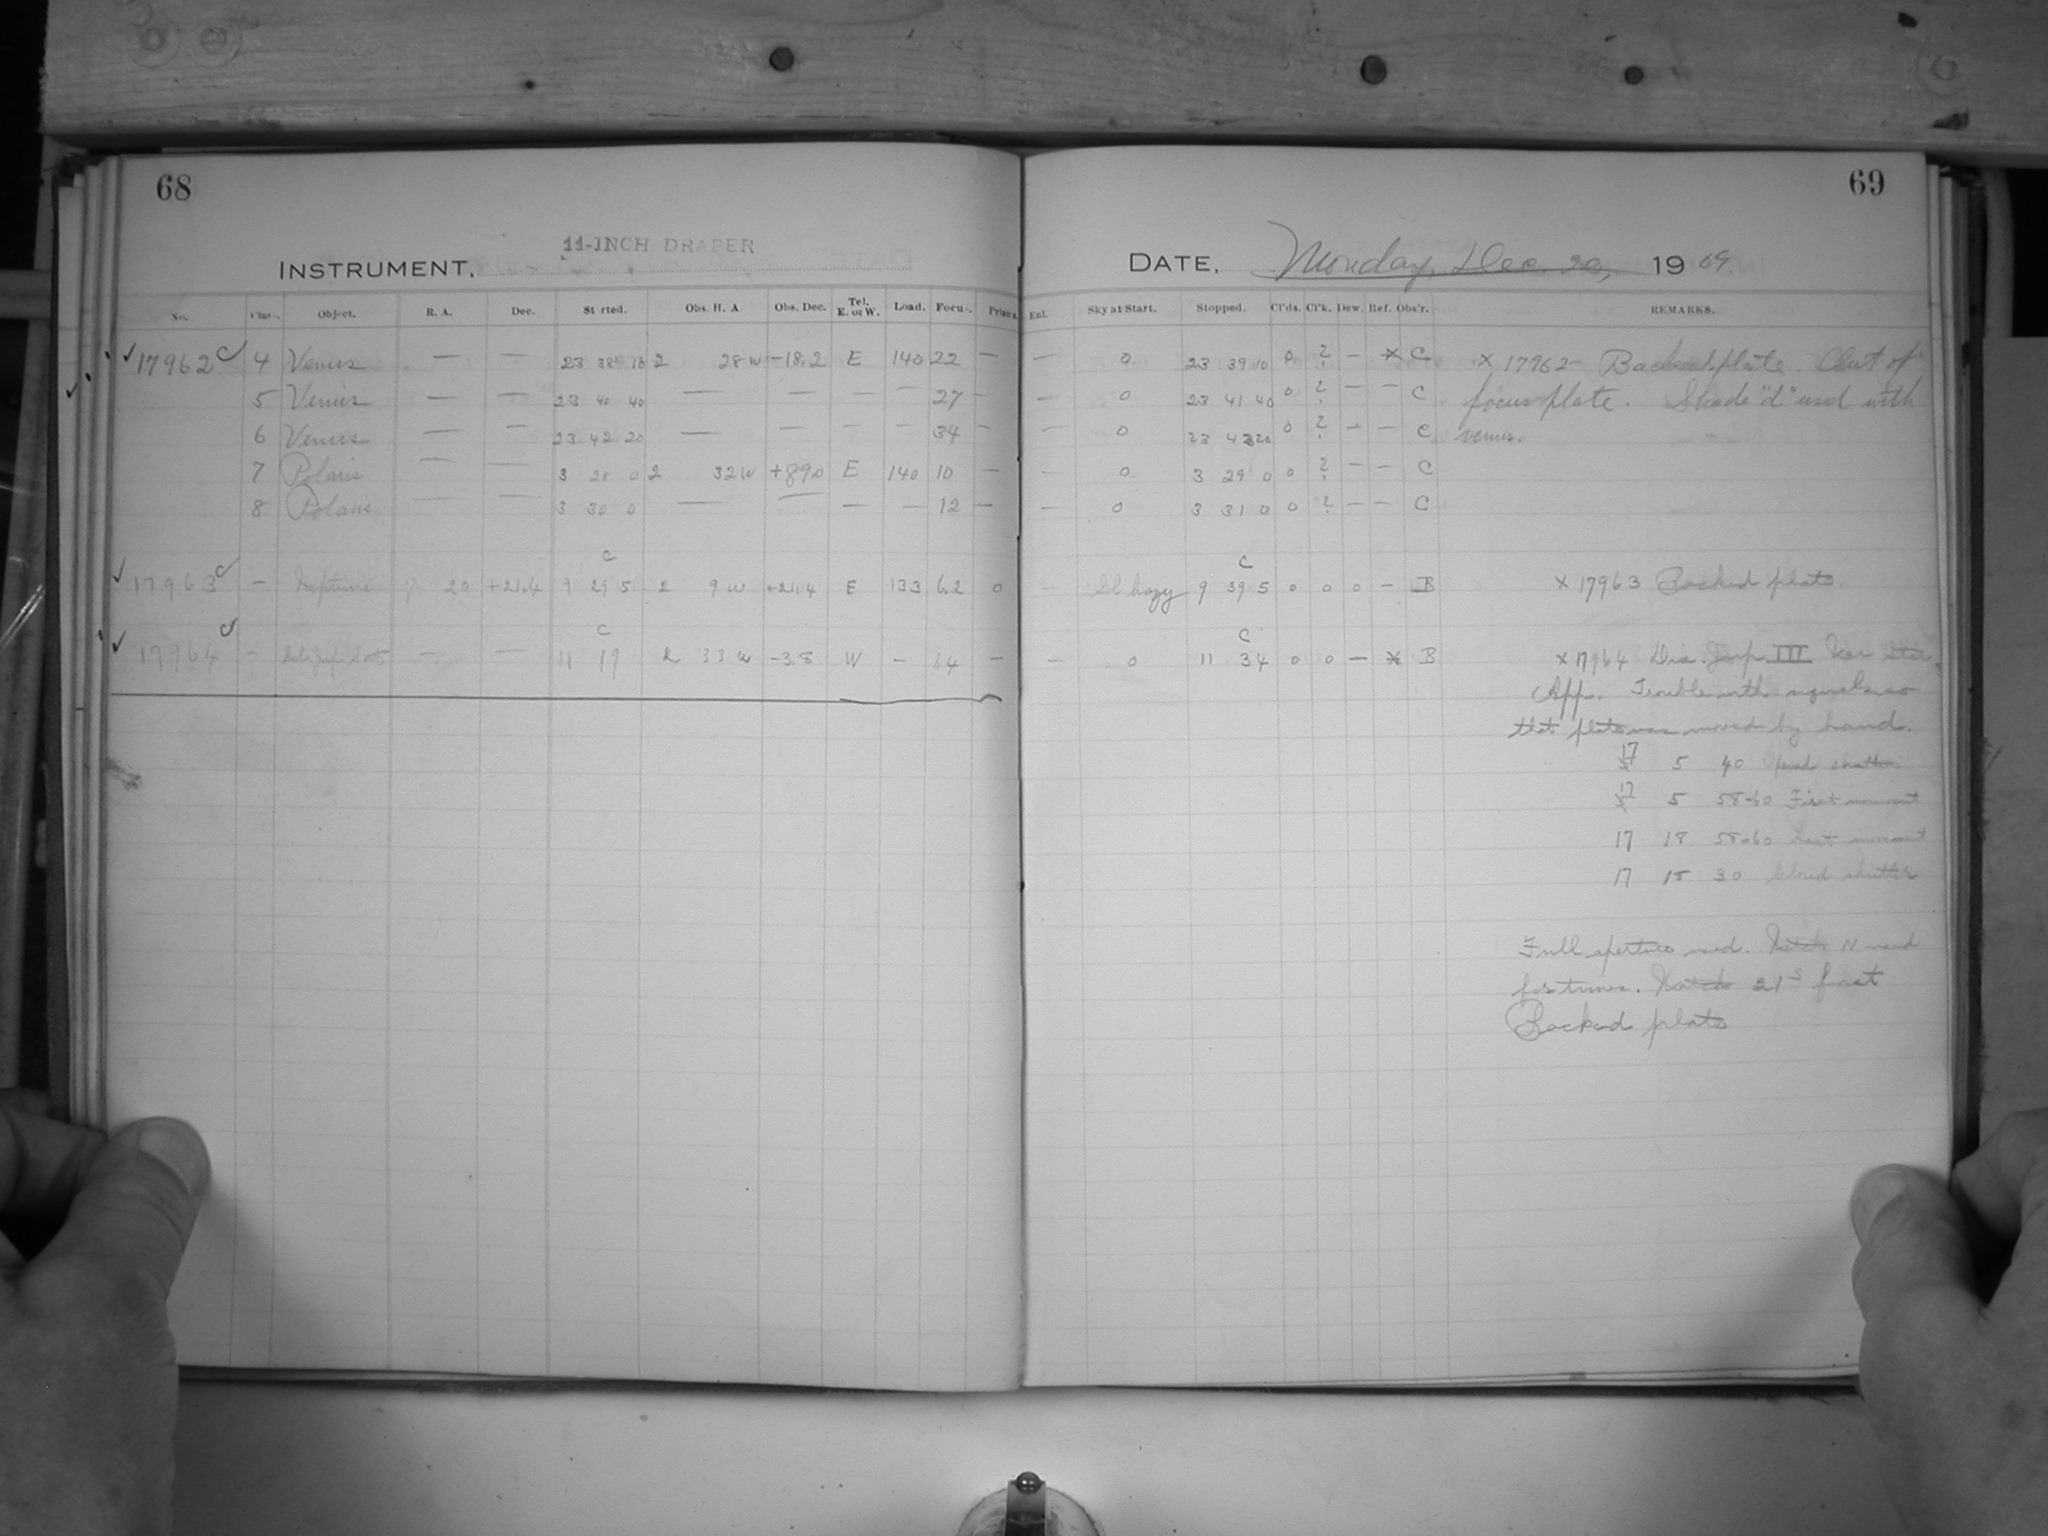 68
69
11-INCH DRAPER
INSTRUMENT,
DATE, Monday, Dec. 20, 1909.
No. Class. Object. R. A. Dec. Started. Obs. H. A. Obs. Dec. Tel. E. or W. Load. Focus. Prisms. Enl. Sky at Start. Stopped. Cl'ds. Cl'k. Dew. Ref. Obs'r. REMARKS.
17962 C 4 Venus — — 23 38 10 2 28 W -18.2 E 140 22 — — 0 23 39 10 0 ? — X C X 17962 - Backed plate. Out of
5 Venus — — 23 40 40 — — — — 27 — — 0 23 41 40 0 ? — — C focus plate. Shade "d" used with
6 Venus — — 23 42 20 — — — — 34 — — 0 23 43 20 0 ? — — C venus.
7 Polaris — — 3 28 0 2 32 W +89.0 E 140 10 — — 0 3 29 0 0 ? — — C
8 Polaris — — 3 30 0 — — — — 12 — — 0 3 31 0 0 ? — — C
C C
17963 C — Neptune 7 20 +21.4 9 29 5 2 9 W +21.4 E 133 6.2 0 — Sl hazy 9 39 5 0 0 0 — B X 17963 Backed plate.
C C
17964 C — — — 11 19 2 33 W -3.8 W — 14 — — 0 11 34 0 0 — X B X 17964 Dis. Jup. III
App. Trouble with signals so
that plate was moved by hand.
17 5 40 shutter
17 5 58-60 First movement
17 18 58-60 Last movement
17 30 Closed shutter
Full aperture used. N used
for times. 21s fast
Backed plate